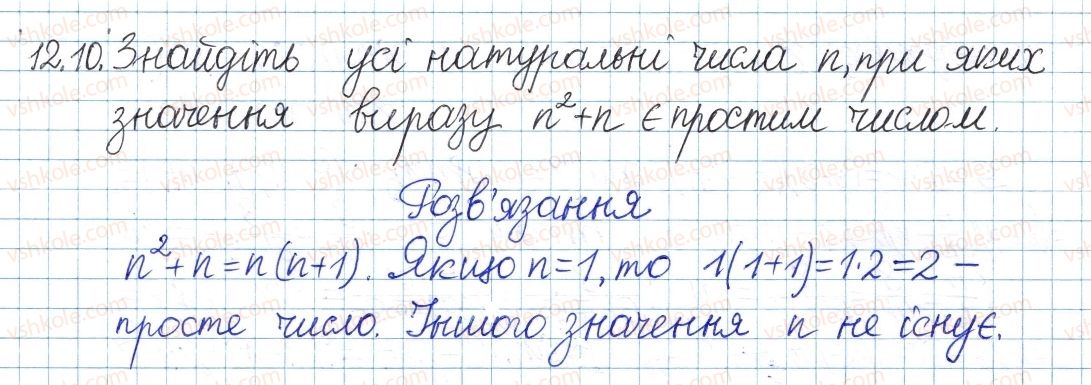 12.10. Знайдіть усі натуральні числа n, при яких
значення виразу n²+n є простим числом.
Розв'язання
n²+n=n(n+1). Якщо n=1, то 1(1+1)=1·2=2 –
просте число. Іншого значення n не існує.